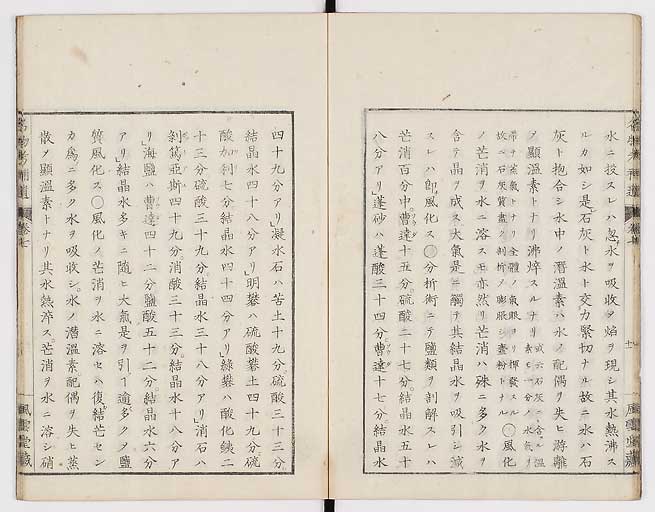 水ニ投スレハ忽水ヲ吸收ヲ焰ヲ現シ其水熱沸ス
ルカ如シ是石灰ト水ト交力緊切ナル故ニ水ハ石
灰ト抱合シ水中ノ潛溫素ハ水ノ配偶ヲ失ヒ游離
ノ顯溫素トナリ沸焠スルナリ
ノ芒消ヲ水ニ溶スモ亦然リ芒消ハ殊ニ多ク水ヲ
含テ晶ヲ成ス大氣是ニ觸テ其結晶水ヲ吸引シ減
スレハ卽風化ス○分析術ニテ鹽類ヲ剖解スレハ
芒消百分中曹達十五分硫酸二十七分結晶水五十
八分アリ」蓬砂ハ蓬酸三十四分曹達十七分結晶水
四十九分アリ」凝水石ハ苦土十九分硫酸三十三分
結晶水四十八分アリ」明礬ハ硫酸礬土四十九分硫
酸加利七分結晶水四十四分アリ」綠礬ハ酸化鐵二
十三分硫酸三十九分結晶水三十八分アリ」消石ハ
剝篤亞斯四十九分消酸三十三分結晶水十八分ア
リ」海鹽ハ曹達四十二分鹽酸五十二分結晶水六分
アリ」結晶水多キニ隨ヒ大氣是ヲ引テ逾多クノ鹽
質風化ス○風化ノ芒消ヲ水ニ溶セハ復結芒セン
カ爲ニ多ク水ヲ吸收シ水ノ潛溫素配偶ヲ失ヒ蒸
散ノ顯溫素トナリ其水熱焠ス芒消ヲ水ニ溶シ硝
卷七
風雲堂藏